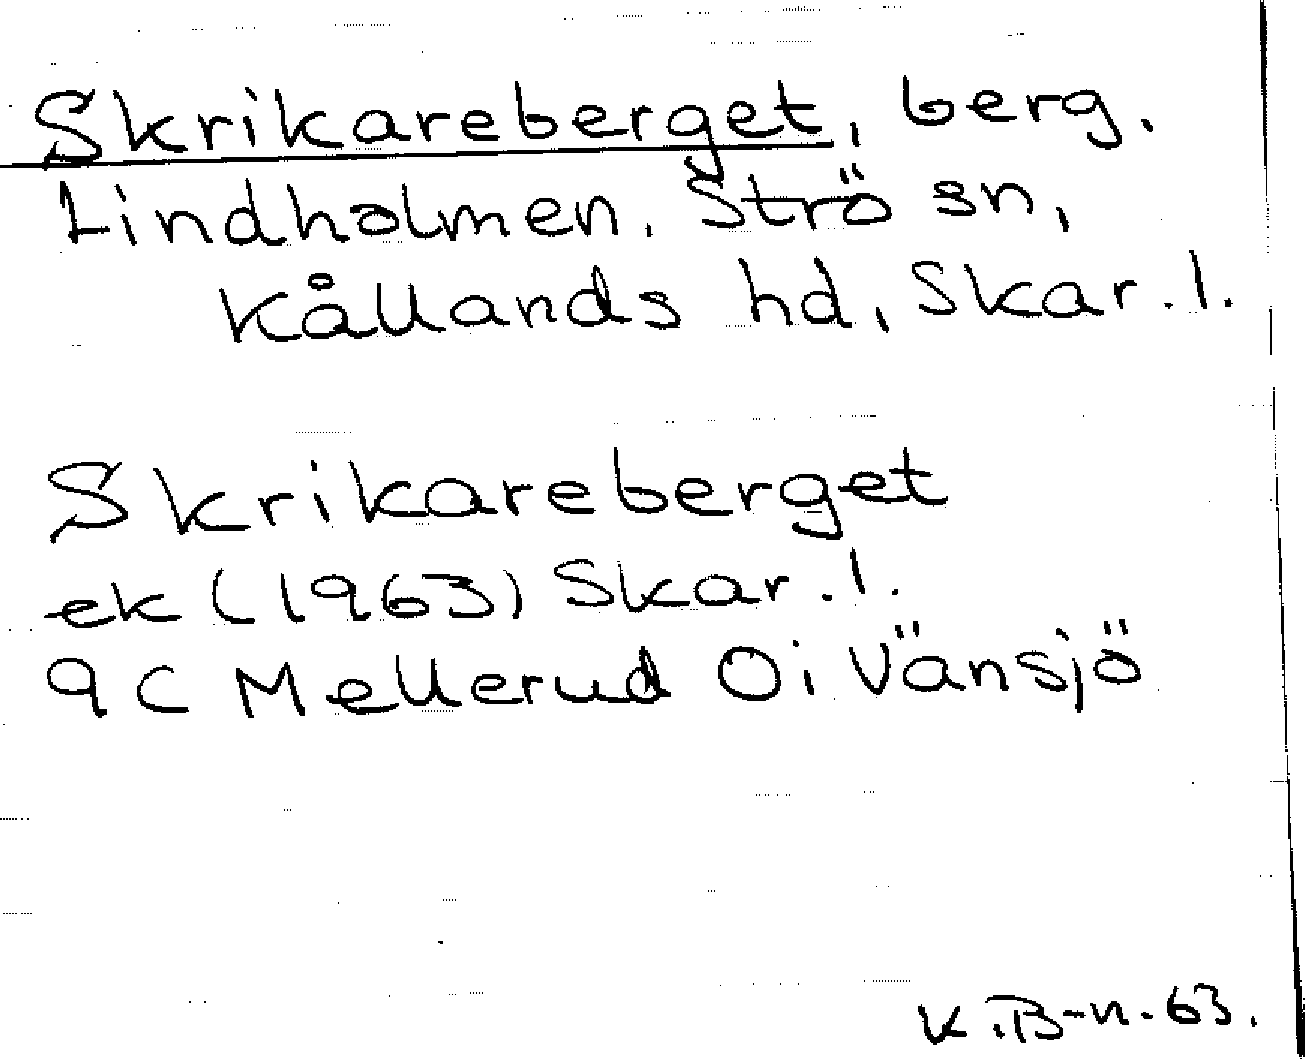 Skrikareberget, berg.
Lindholmen. Strö sn,
Kållands hd, Skar. l.
Skrikareberget
ek (1963) Skar. l.
9C Mellerud Oi Vänsjö
K.B-n.63.